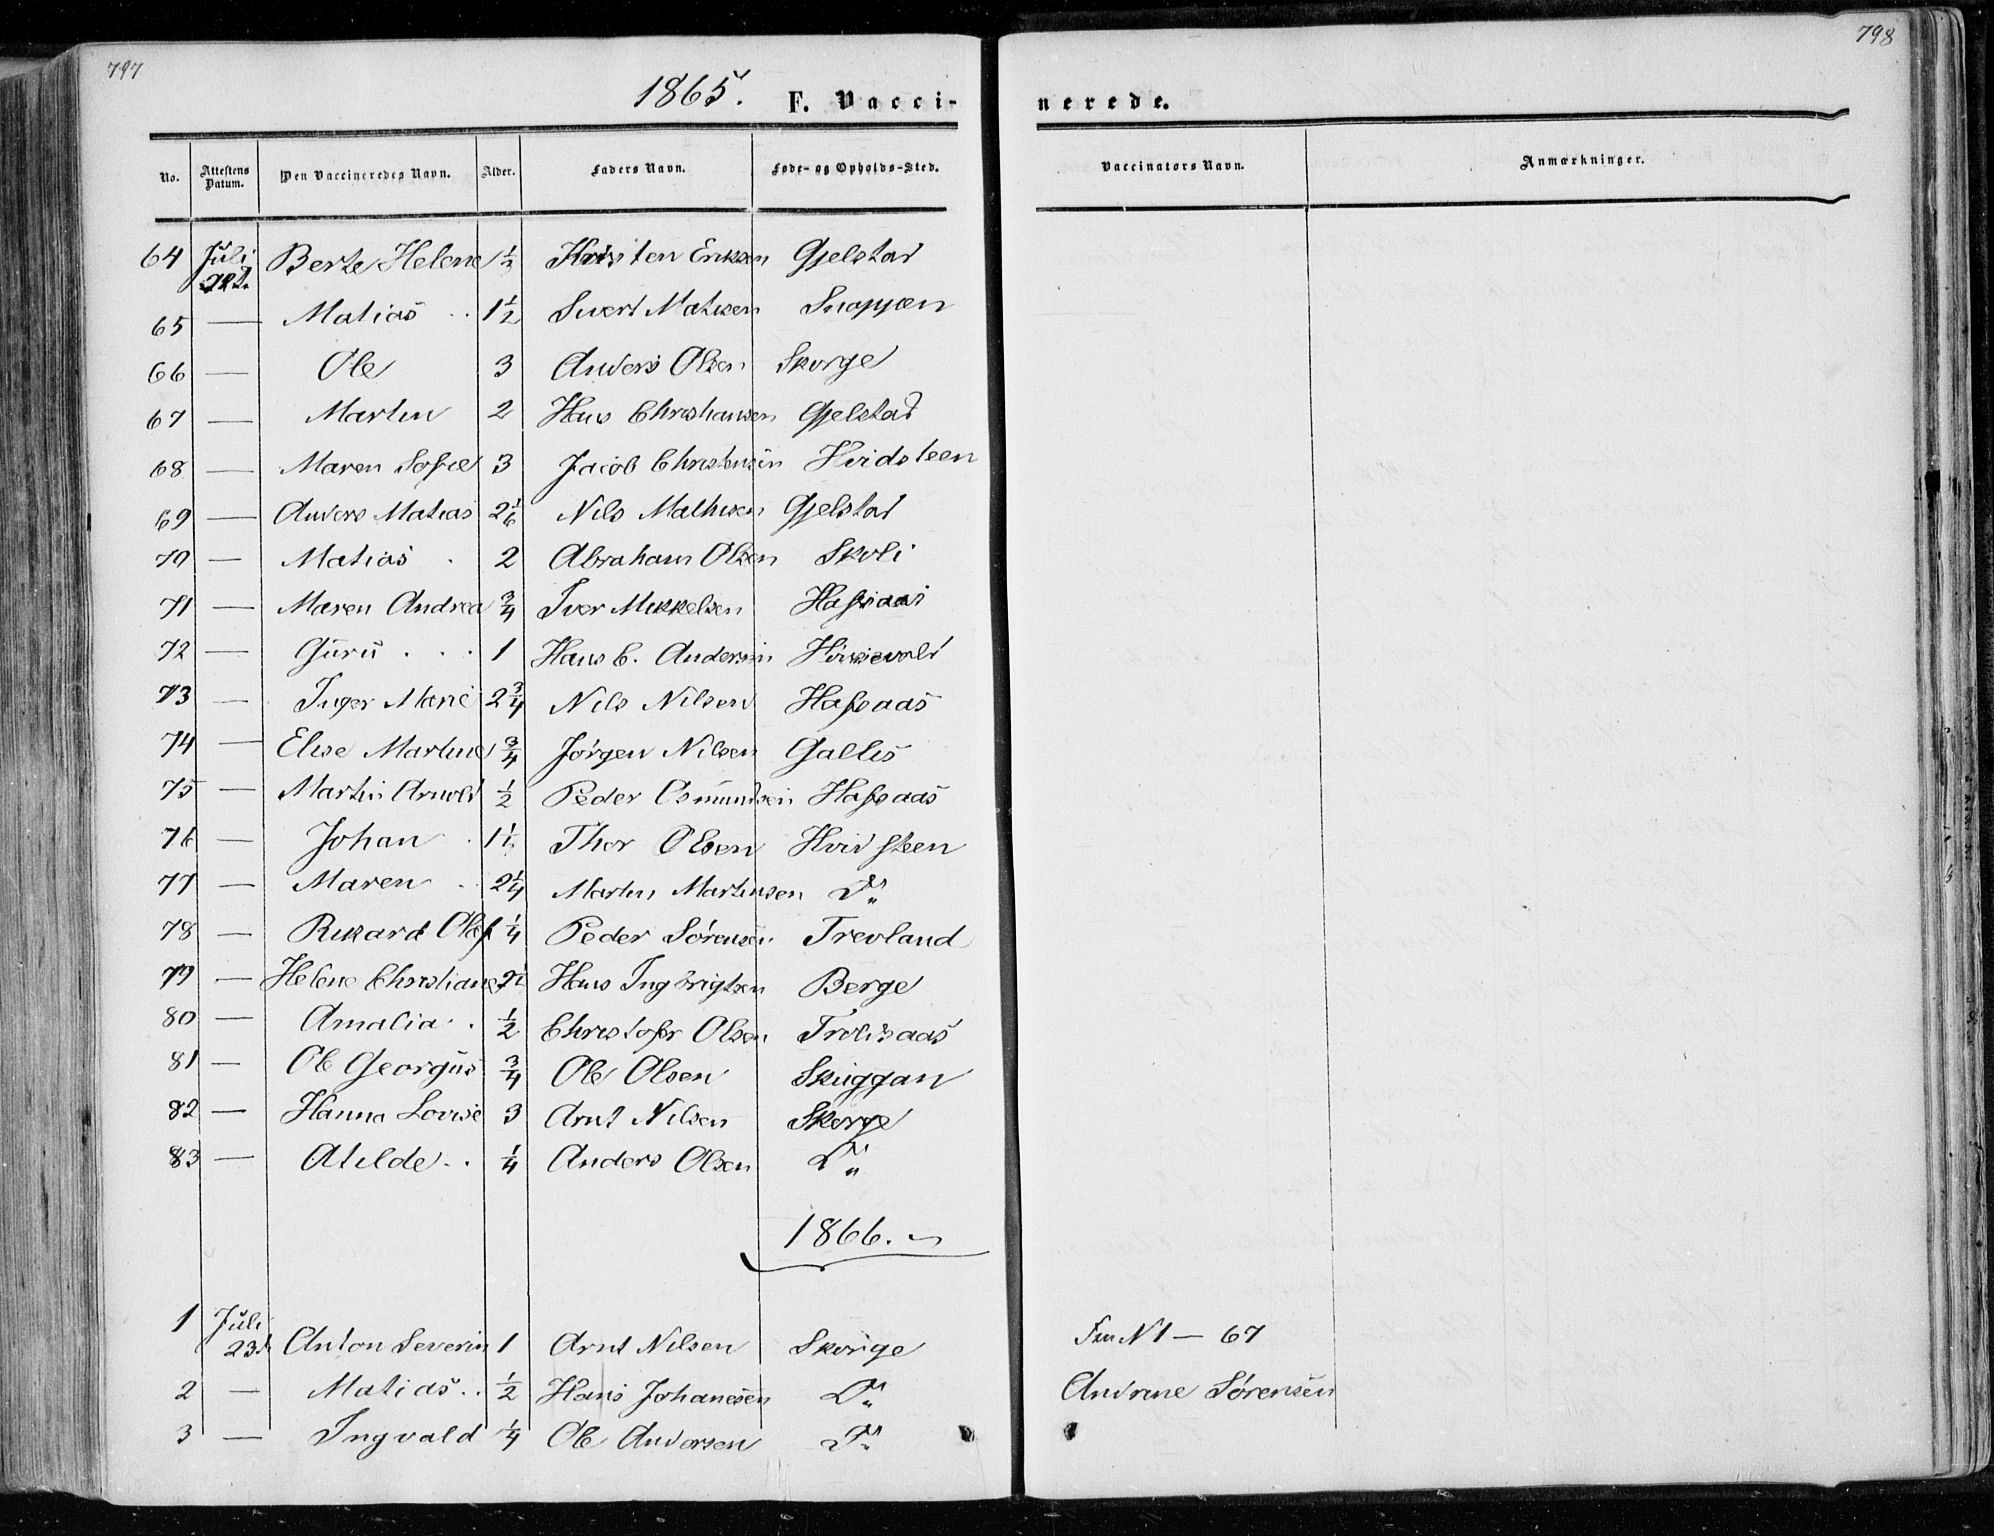 797
798
1865.
F. Vacci-
nerede.
No. Attestens Datum. Den Vaccineredes Navn. Alder. Faders Navn. Føde- og Opholds-Sted. Vaccinators Navn. Anmærkninger.
64 Juli Berte Helene ½ Kristen Eriksen Gjelstad
65 — Matias . . 1½ Sivert Matisen Snoppen
66 — Ole 3 Anders Olsen Skorge
67 — Martin 2 Hans Christiansen Gjelstad
68 — Maren Sofie 3 Jacob Christensen Hvidsteen
69 — Anders Matias 2⅙ Nils Mathisen Gjelstad
70 — Matias . 2 Abraham Olsen Skoli
71 — Maren Andrea ¾ Iver Mikkelsen Hafsaas
72 — Guru . . . 1 Hans C. Andersen
73 — Inger Marie 2¾ Nils Nilsen Hafsaas
74 — Elise Martine ¾ Jørgen Nilsen Gallis
75 — Martin Arnold ½ Peder Osmundsen Hafsaas
76 — Johan . 1½ Thor Olsen Hvidsteen
77 — Maren . 2¼ Martin Martinsen Do
78 — Rikard Olaf ¼ Peder Sørensen Trevland
79 — Helene Christiane Hans Ingbrigtsen Berge
80 — Amalia . . ½ Christofer Olsen Troldsaas
81 — Ole Georgus ¾ Ole Olsen Skuggan
82 — Hanna Lovise 3 Arnt Nilsen Skorge
83 — Atilde . . ¼ Anders Olsen Do
1866.
1 Juli
23d Anton Severin 1 Arnt Nilsen Skorge Fra N 1 — 67
2 — Matias . . ½ Hans Johanesen Do Andrine Sørensen
3 — Ingvald ¼ Ole Andersen Do